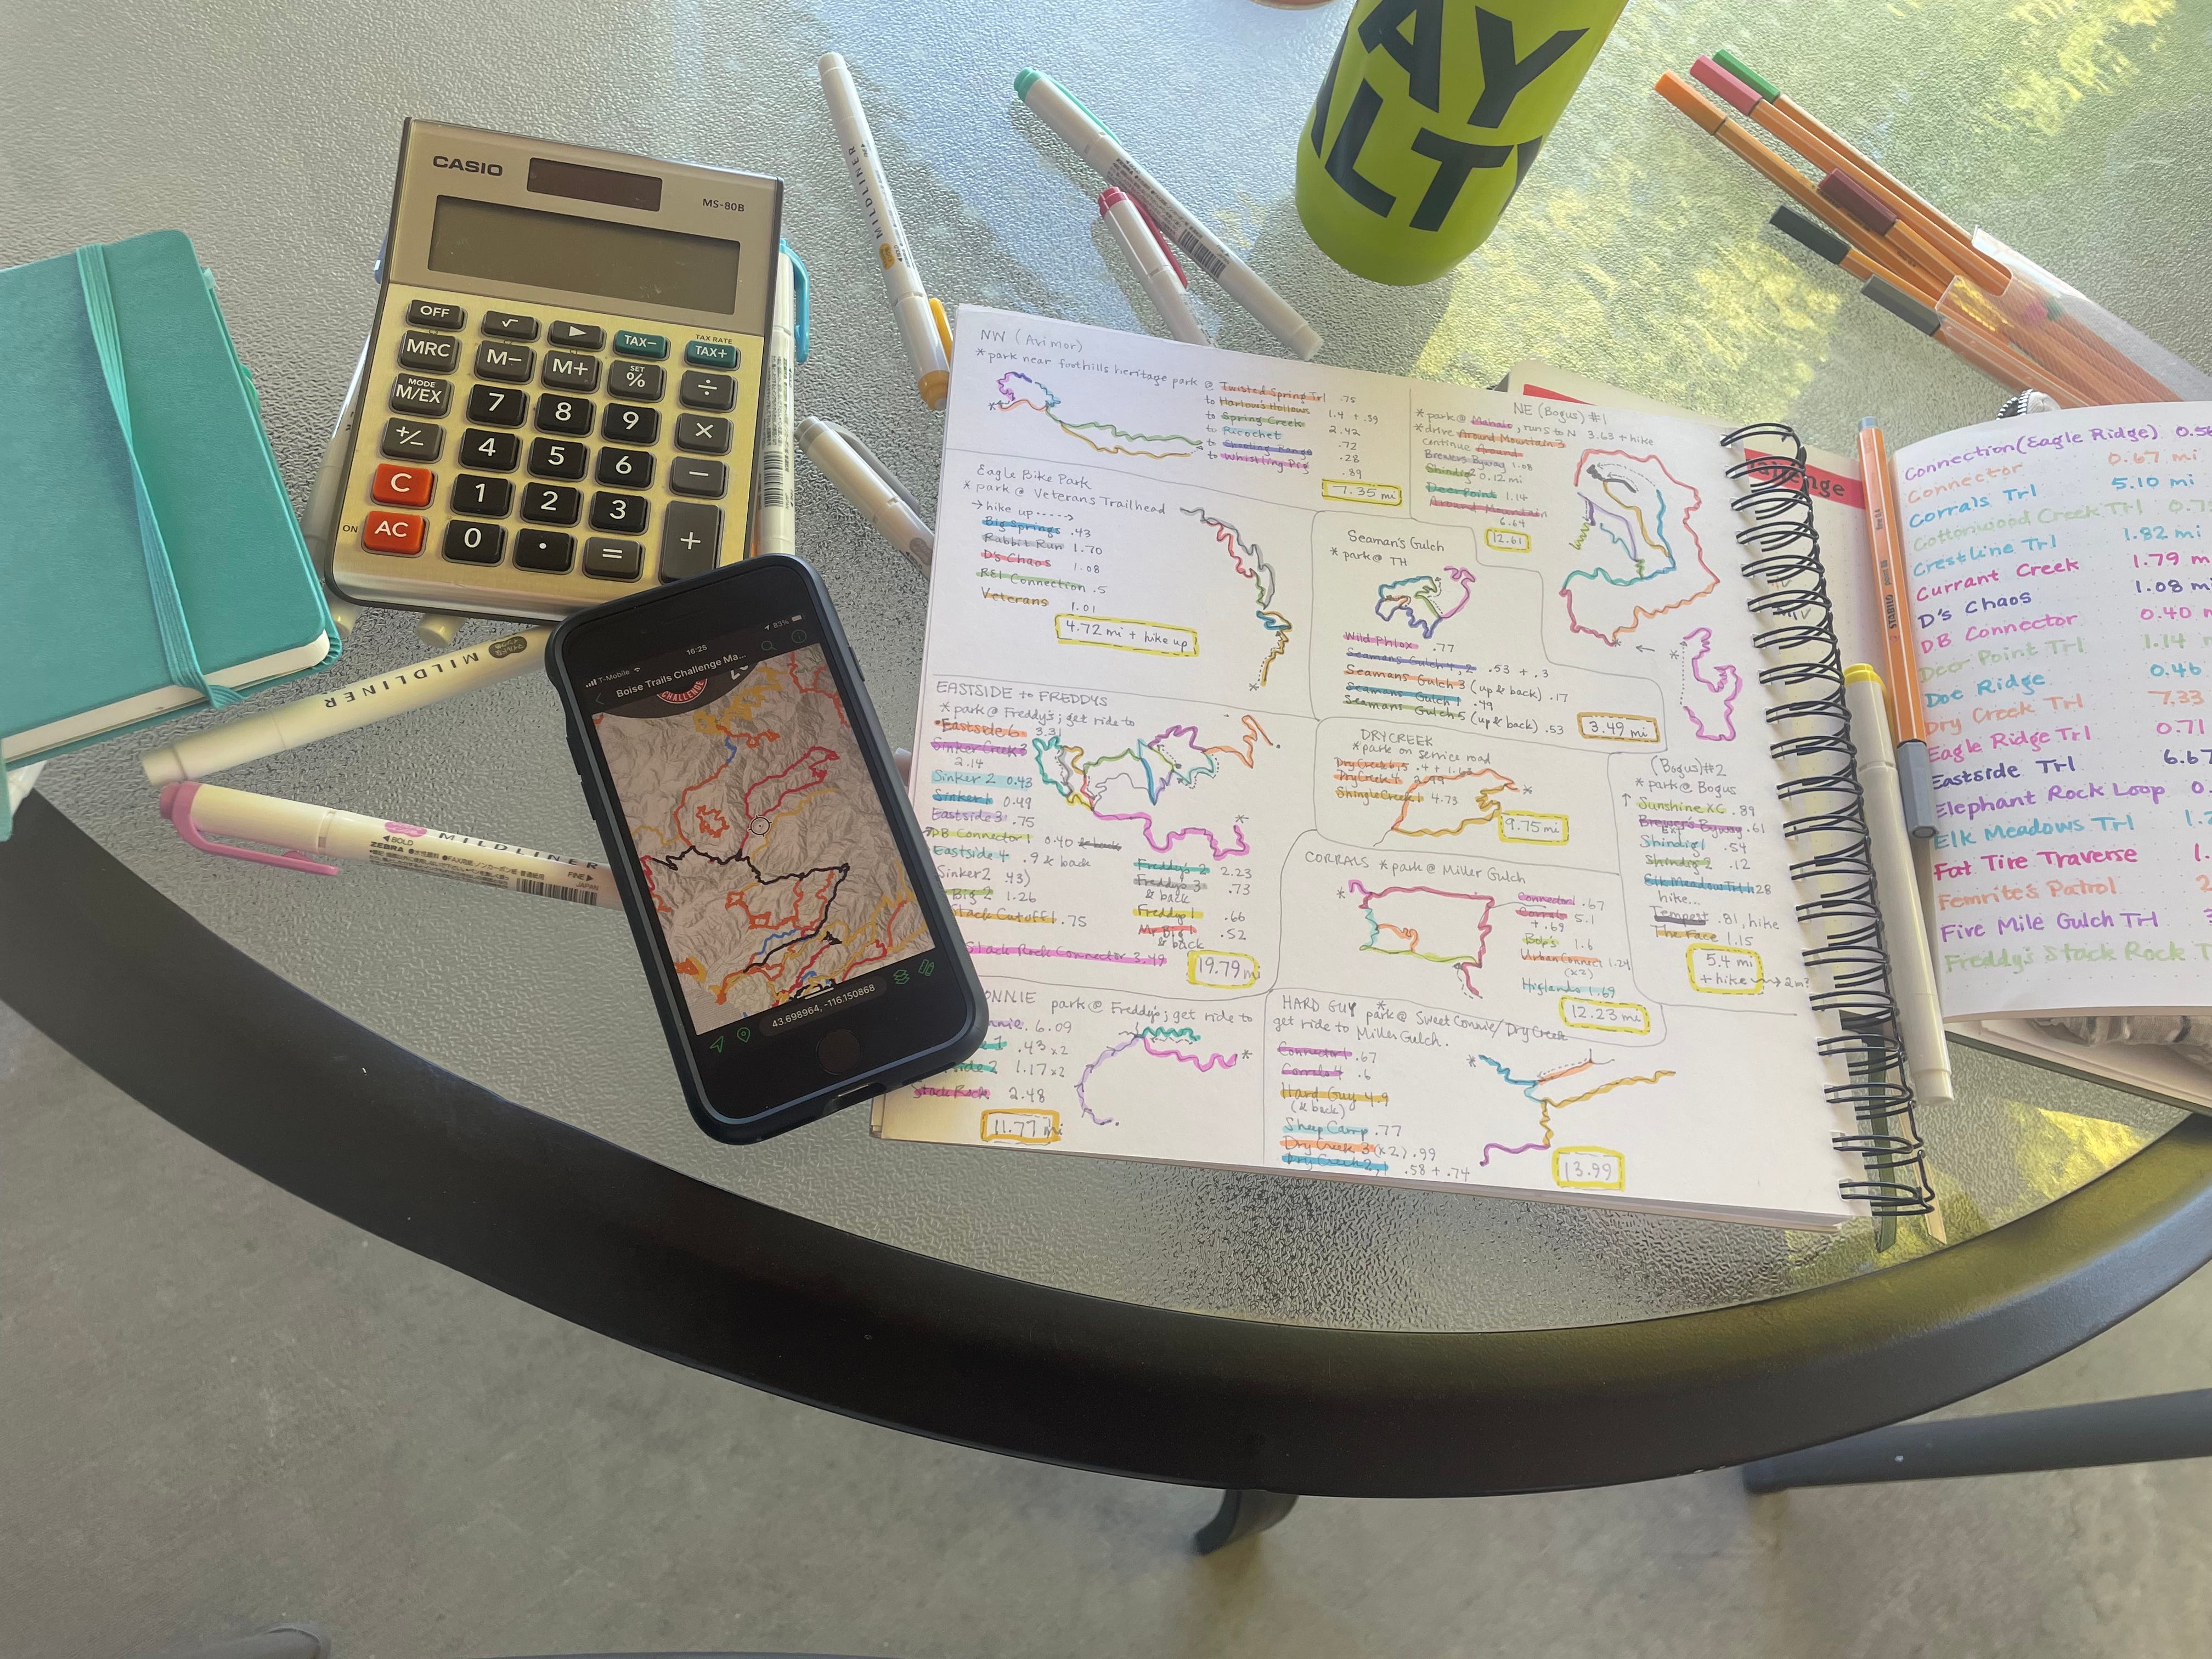 CASIO
MS-80B
OFF
√
▶
TAX−
TAX RATE
TAX+
MRC
M−
M+
SET
%
÷
MODE
M/EX
7
8
9
×
+/−
4
5
6
−
C
1
2
3
+
ON
AC
0
·
=
MILDLINER
MILDLINER
MILDLINER
BOLD
ZEBRA
FINE
JAPAN
AY
LT
T-Mobile
16:25
83%
Boise Trails Challenge Ma...
CHALLENGE
43.698964, -116.150868
NW (Avimor)
*park near foothills heritage park @ Twisted Spring Trl .75
to Harlow's Hollows 1.4 + .89
to Spring Creek 2.42
to Ricochet .72
to Shooting Range .28
to Whistling Pig .89
7.35 mi
NE (Bogus) #1
*park @ Mahalo, runs to N 3.63 + hike
*drive Around Mountain 3
continue Around
Brewers Byway 1.08
Shindig 2 0.12 mi
Deer Point 1.14
Around Mountain
6.64
12.61
Eagle Bike Park
* park @ Veterans Trailhead
→ hike up
Big Springs .43
Rabbit Run 1.70
D's Chaos 1.08
REI Connection .5
Veterans 1.01
4.72 mi + hike up
Seaman's Gulch
* park @ TH
Wild Phlox .77
Seamans Gulch 4, 2 .53 + .3
Seamans Gulch 3 (up & back) .17
Seamans Gulch 1 .49
Seamans Gulch 5 (up & back) .53
3.49 mi
EASTSIDE to FREDDYS
*park @ Freddy's; get ride to
Eastside 6 3.31
Sinker Creek 3
2.14
Sinker 2 0.43
Sinker 1 0.49
Eastside 3 .75
DB Connector 1 0.40 & back
Eastside 4 .9 & back
Sinker 2 .43)
Big 2 1.26
Stack Cutoff 1 .75
Stack Rock Connector 3.49
Freddy's 2 2.23
Freddy's 3 .73
& back
Freddy 1 .66
Mr Big 1 .52
& back
19.79 mi
DRY CREEK
*park on service road
Dry Creek 4
Shingle Creek 1 4.73
9.75 mi
(Bogus) #2
* park @ Bogus
Sunshine XC .89
Brewer's Byway .61
Ext
Shindig 1 .54
Shindig 2 .12
Elk Meadow Trl 1.28
hike...
Tempest .81, hike
The Face 1.15
5.4 mi
+ hike → 2 mi?
CORRALS *park @ Miller Gulch
Connector 1 .67
Corrals 5.1
+ .69
Bob's 1.6
Urban Connect 1.24
(x2)
Highlands 1.69
12.23 mi
ONNIE park @ Freddy's; get ride to
nnie 6.09
1 .43 x2
side 2 1.17 x2
Stack Rock 2.48
11.77 mi
HARD GUY * park @ Sweet Connie/Dry Creek
get ride to Miller Gulch.
Connector 1 .67
Corrals 4 .6
Hard Guy 4.9
(& back)
Sheep Camp .77
Dry Creek 3 (x2) .99
Dry Creek 2, 1 .58 + .74
13.99
allenge
STABILO
Connection (Eagle Ridge) 0.5
Connector 0.67 mi
Corrals Trl 5.10 mi
Cottonwood Creek Trl 0.7
Crestline Trl 1.82 mi
Currant Creek 1.79 m
D's Chaos 1.08 mi
DB Connector 0.40
Deer Point Trl 1.14
Doe Ridge 0.46
Dry Creek Trl 7.33
Eagle Ridge Trl 0.71
Eastside Trl 6.67
Elephant Rock Loop 0.
Elk Meadows Trl 1.2
Fat Tire Traverse 1.
Femrite's Patrol 2
Five Mile Gulch Trl 3
Freddy's Stack Rock T